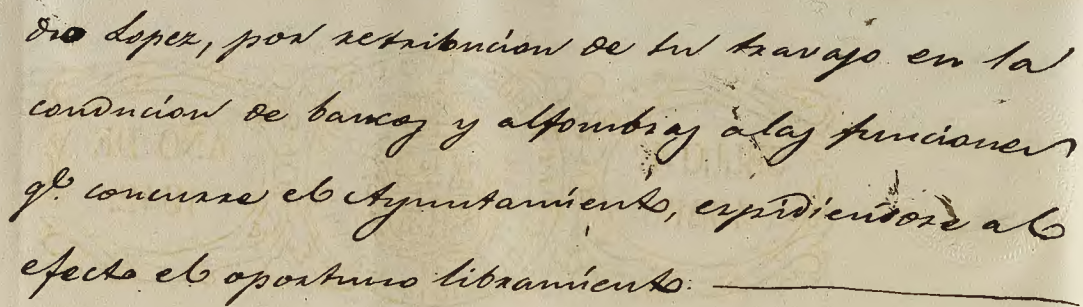 dro Lopez, por retribucion de su travajo en la
conducion de bancos y alfombras á las funciones
qe. concurre el Ayuntamiento, expidiendose al
efecto el oportuno libramiento.